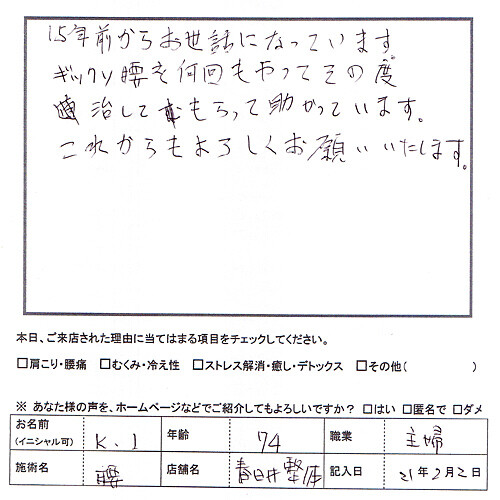 15年前からお世話になっています
ギックリ腰を何回もやってその度
治してもらって助かっています。
これからもよろしくお願いいたします。
本日、ご来店された理由に当てはまる項目をチェックしてください。
□肩こり・腰痛 □むくみ・冷え性 □ストレス解消・癒し・デトックス □その他( )
※ あなた様の声を、ホームページなどでご紹介してもよろしいですか? □はい □匿名で □ダメ
お名前 (イニシャル可) K.I 年齢 74 職業 主婦
施術名 腰 店舗名 春日井整体 記入日 21年2月2日